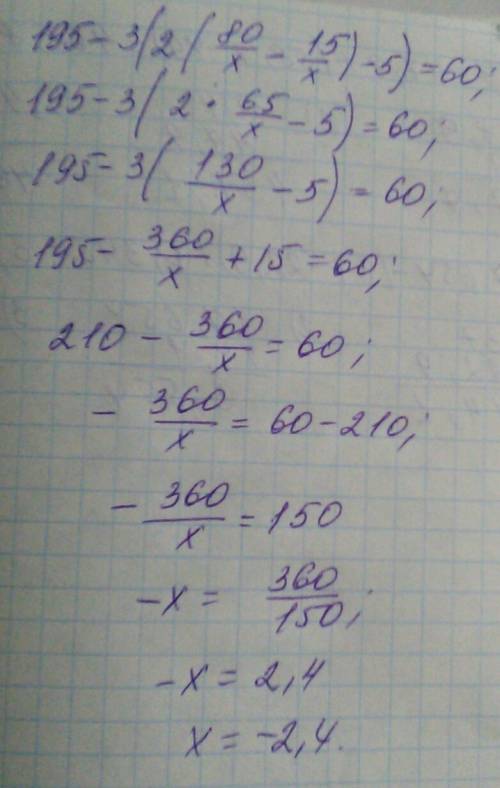 195 - 3(2(80/x - 15/x) - 5) = 60;
195 - 3(2 · 65/x - 5) = 60;
195 - 3(130/x - 5) = 60;
195 - 360/x + 15 = 60;
210 - 360/x = 60;
- 360/x = 60 - 210;
- 360/x = 150
-x = 360/150;
-x = 2,4
x = -2,4.